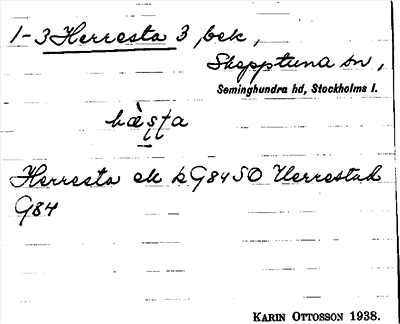 1-3 Herresta 3, bek,
Skepptuna sn,
Seminghundra hd, Stockholms l.
hæ̀sta
Herresta ek k G84 SO Herrestad
G84
KARIN OTTOSSON 1938.